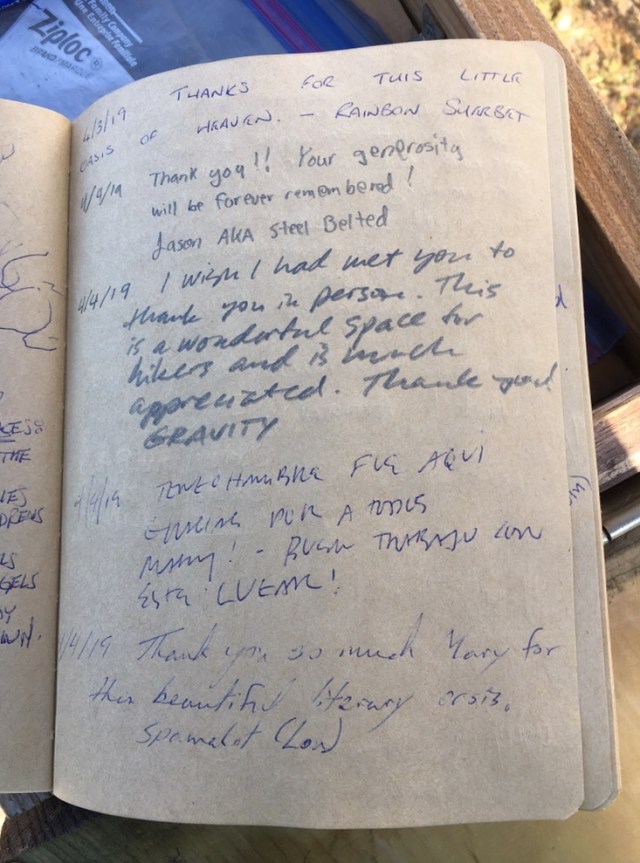 Family Company
Ziploc
BRAND
4/3/19 THANKS FOR THIS LITTLE
OASIS OF HEAVEN. - RAINBOW SHERBET
4/4/19 Thank you!! Your generosity
will be forever remembered!
Jason AKA Steel Belted
4/4/19 I wish I had met you to
thank you in person. This
is a wonderful space for
hikers and is much
appreciated. Thank you!
GRAVITY
4/4/19 FUE AQUI
POR A TODOS
! - BUEN TRABAJO CON
ESTE LUGAR!
4/4/19 Thank you so much Mary for
this beautiful literary oasis.
Spamalot (Lou)
THE